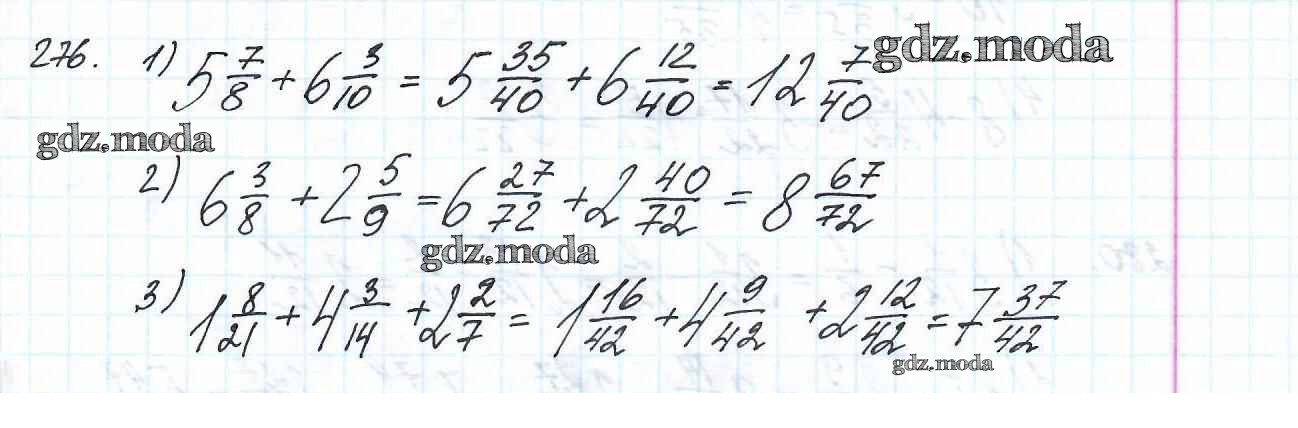 276. 1) 5 7/8 + 6 3/10 = 5 35/40 + 6 12/40 = 12 7/40 gdz.moda
gdz.moda
2) 6 3/8 + 2 5/9 = 6 27/72 + 2 40/72 = 8 67/72
gdz.moda
3) 1 8/21 + 4 3/14 + 2 2/7 = 1 16/42 + 4 9/42 + 2 12/42 = 7 37/42
gdz.moda